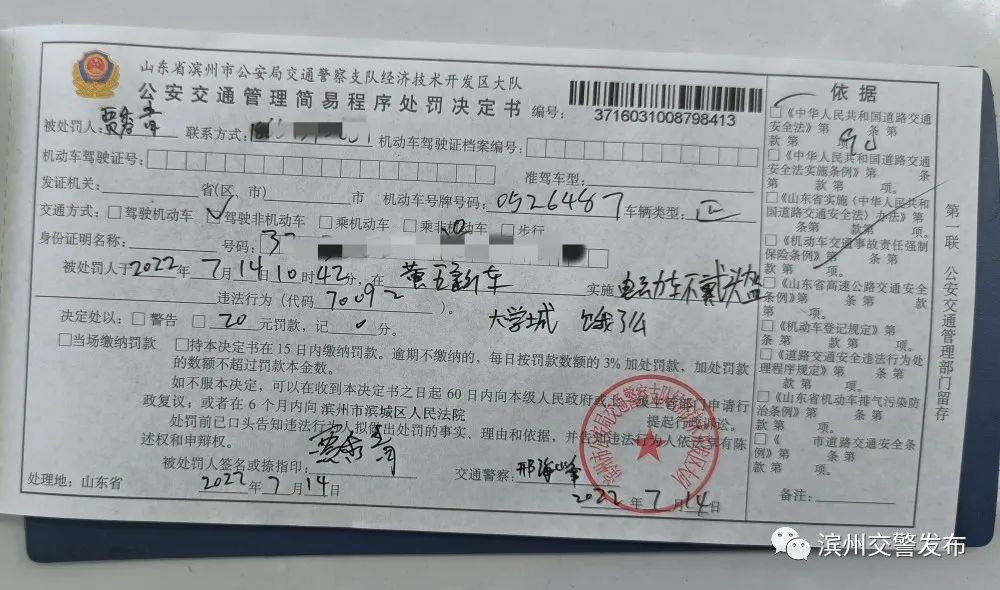 山东省滨州市公安局交通警察支队经济技术开发区大队
公安交通管理简易程序处罚决定书
编号:
3716031008798413
被处罚人: 贾
联系方式:
机动车驾驶证档案编号:
机动车驾驶证号:
准驾车型:
发证机关: 省(区、市) 市 机动车号牌号码: 0526487 车辆类型: 正
交通方式: □驾驶机动车 ☑驾驶非机动车 □乘机动车 □乘非机动车 □步行
身份证明名称: 号码: 37
被处罚人于2022年7月14日10时42分,在 黄五 实施 电动车不戴头盔
违法行为(代码70092)。 大学城
决定处以: □警告 □20元罚款,记0分。
□当场缴纳罚款 □持本决定书在15日内缴纳罚款。逾期不缴纳的,每日按罚款数额的3%加处罚款,加处罚款
的数额不超过罚款本金数。
如不服本决定,可以在收到本决定书之日起60日内向本级人民政府或上一级主管部门申请行
政复议;或者在6个月内向 滨州市滨城区人民法院 提起行政诉讼。
处罚前已口头告知违法行为人拟做出处罚的事实、理由和依据,并告知违法行为人依法享有陈
述权和申辩权。
被处罚人签名或捺指印: 贾
交通警察: 邢海峰
处理地: 山东省
2022年7月14日
2022年7月14日
依据
□《中华人民共和国道路交通
安全法》第 条 第
款 第 项。
□《中华人民共和国道路交通
安全法实施条例》第 条 第
款 第 项。
□《山东省实施〈中华人民共和
国道路交通安全法〉办法》第
条第 款第 项。
□《机动车交通事故责任强制
保险条例》第 条 第 款。
□《山东省高速公路交通安全
条例》第 条 第 款 第
项。
□《机动车登记规定》第
条 第 款 第 项。
□《道路交通安全违法行为处
理程序规定》第 条 第
款 第 项。
□《山东省机动车排气污染防
治条例》第 条 第 款。
□《 市道路交通安全条
例》第 条 第 款 第
项。
备注:
第一联 公安交通管理部门留存
滨州交警发布